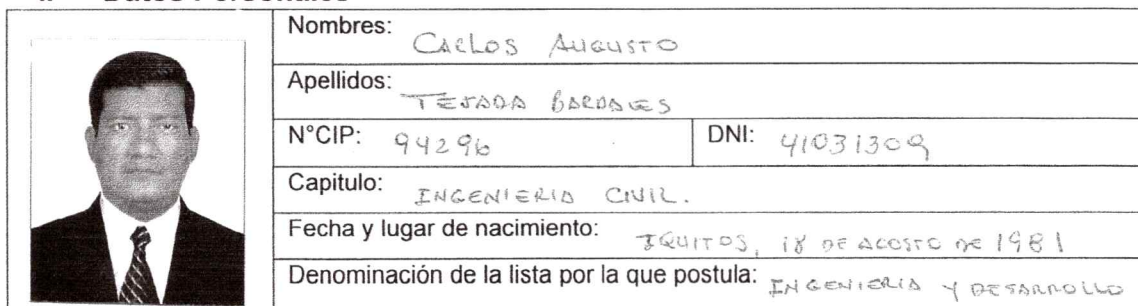 Nombres: CARLOS AUGUSTO
Apellidos: TEJADA BARDALES
N°CIP: 94296 DNI: 41031309
Capitulo: INGENIERIA CIVIL.
Fecha y lugar de nacimiento: IQUITOS, 18 DE AGOSTO DE 1981
Denominación de la lista por la que postula: INGENIERIA Y DESARROLLO